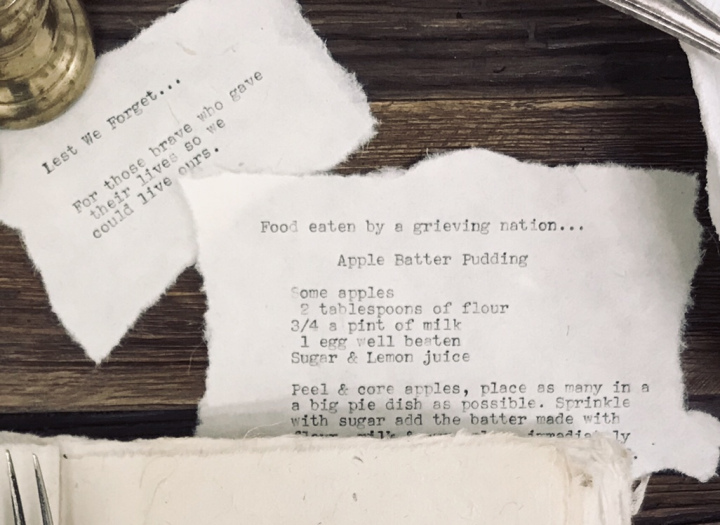 Lest We Forget...
For those brave who gave
their lives so we
could live ours.
Food eaten by a grieving nation...
Apple Batter Pudding
Some apples
2 tablespoons of flour
3/4 a pint of milk
1 egg well beaten
Sugar & Lemon juice
Peel & core apples, place as many in a
a big pie dish as possible. Sprinkle
with sugar add the batter made with
flour, milk & immediately